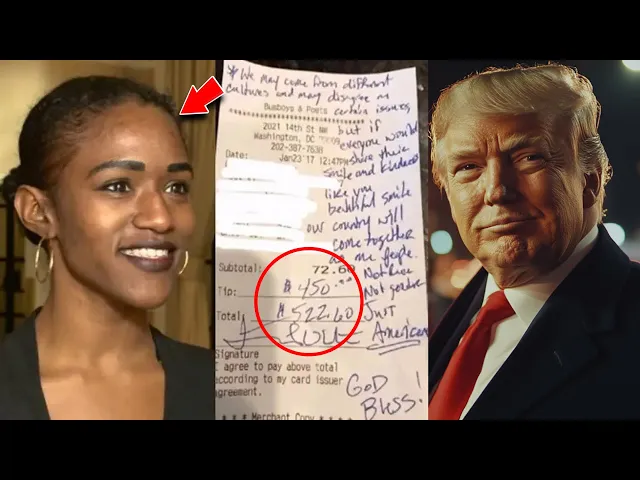 * We may come from different
cultures and may disagree on
certain issues
Busboys & Poets
2021 14th St NW
but if
Washington, DC
everyone would
202-387-7638
share their
Date: Jan23'17 12:47PM
smile and kindness
like your
beautiful smile
our country will
come together
as people.
Subtotal: 72.60
Not Race
Tip: $ 450.00
Not gender
Total $ 522.60
Just
American
Signature
I agree to pay above total
according to my card issuer
agreement.
GOD
Bless!
* * * Merchant Copy * * *